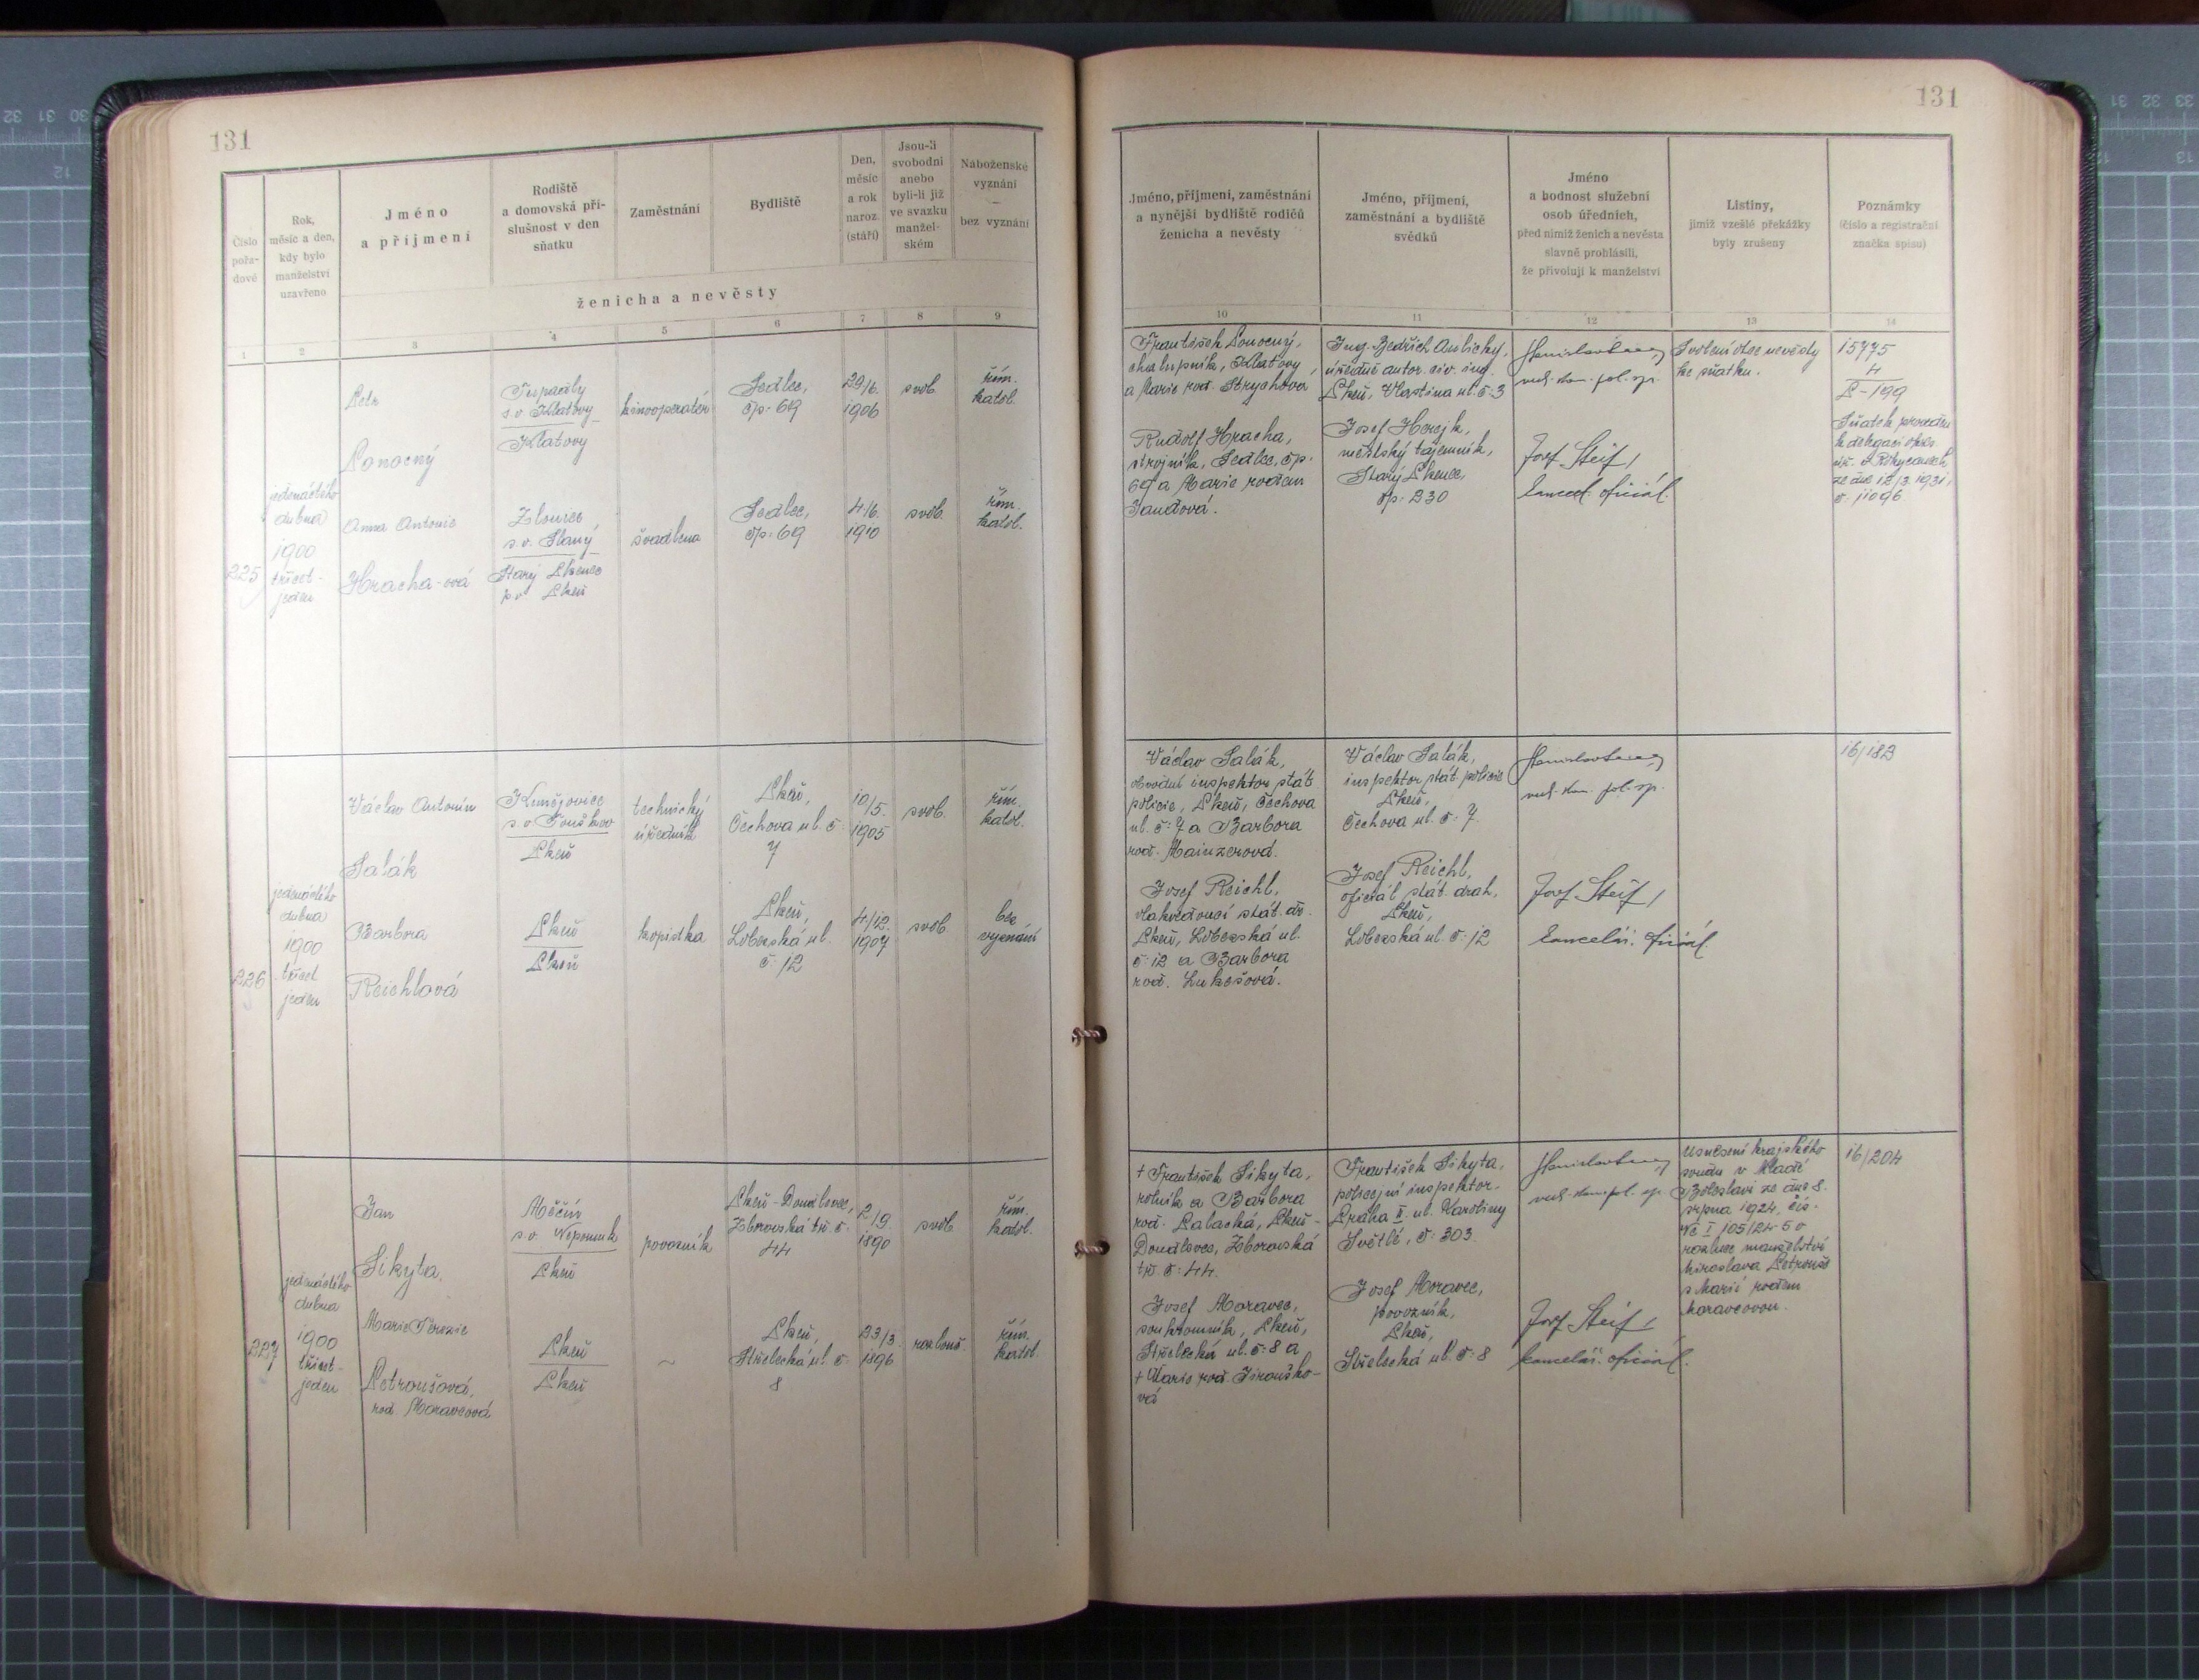 131
Číslo
pořa-
dové
Rok,
měsíc a den,
kdy bylo
manželství
uzavřeno
Jméno
a příjmení
Rodiště
a domovská pří-
slušnost v den
sňatku
Zaměstnání
Bydliště
Den,
měsíc
a rok
naroz.
(stáří)
Jsou-li
svobodni
anebo
byli-li již
ve svazku
manžel-
ském
Náboženské
vyznání
—
bez vyznání
ženicha a nevěsty
1
2
3
4
5
6
7
8
9
225
jedenáctého
dubna
1900
třicet-
jeden
Petr
Ponocný
Tupadly
s.o. Klatovy
Klatovy
kinooperatér
Sedlec,
čp. 69
29/6.
1906
svob.
řím.
katol.
Anna Antonie
Hracha-ová
Zlonice
s.o. Slaný
Starý Plzenec
p.o. Plzeň
švadlena
Sedlec,
čp. 69
4/6.
1910
svob.
řím.
katol.
226
jedenáctého
dubna
1900
třicet
jeden
Václav Antonín
Salák
Kunějovice
s.o. Touškov
Plzeň
technický
úředník
Plzeň,
Čechova ul. č:
7
10/5.
1905
svob.
řím.
katol.
Barbora
Reichlová
Plzeň
Plzeň
kopistka
Plzeň,
Lobezská ul.
č: 12
4/12.
1907
svob.
bez
vyznání
227
jedenáctého
dubna
1900
třicet-
jeden
Jan
Sikyta,
Měčín
s.o. Nepomuk
Plzeň
povozník
Plzeň-Doudlevce,
Zborovská tř. č:
44
2/9.
1890
svob.
řím.
katol.
Marie Terezie
Petroušová,
rod. Moravcová
Plzeň
Plzeň
~
Plzeň,
Střelecká ul. č:
8
23/3.
1896
rozlouč.
řím.
katol.
131
Jméno, příjmení, zaměstnání
a nynější bydliště rodičů
ženicha a nevěsty
Jméno, příjmení,
zaměstnání a bydliště
svědků
Jméno
a hodnost služební
osob úředních,
před nimiž ženich a nevěsta
slavně prohlásili,
že přivolují k manželství
Listiny,
jimiž vzešlé překážky
byly zrušeny
Poznámky
(číslo a registrační
značka spisu)
10
11
12
13
14
František Ponocný,
chalupník, Klatovy,
a Marie rod. Strychová
Rudolf Hracha,
strojník, Sedlec, čp.
69 a Marie rodem
Jandová.
Ing. Bedřich Anlický,
úředně autor. civ. ing.
Plzeň, Vlastina ul. č: 3
Josef Horejk,
městský tajemník,
Starý Plzenec,
čp: 230
Josef Steif,
kancel. oficiál.
Svolení otce nevěsty
ke sňatku.
15775
4
P-199
Sňatek proveden
k delegaci okres.
úř. v Rokycanech
ze dne 12/3. 1931,
č. 11096.
Václav Salák,
obvodní inspektor stát.
policie, Plzeň, Čechova
ul. č: 7 a Barbora
rod. Mainzerová.
Josef Reichl,
vlakvedoucí stát. dr.
Plzeň, Lobezská ul.
č: 12 a Barbora
rod. Lukešová.
Václav Salák,
inspektor stát. policie
Plzeň,
Čechova ul. č: 7.
Josef Reichl,
oficiál stát. drah,
Plzeň,
Lobezská ul. č: 12
Josef Steif,
kancelář. oficiál
16/182
† František Sikyta,
rolník a Barbora
rod. Palacká, Plzeň-
Doudlevce, Zborovská
tř. č: 44.
Josef Moravec,
soukromník, Plzeň,
Střelecká ul. č: 8 a
† Marie rod. Jirouško-
vá
František Sikyta,
policejní inspektor.
Praha II. ul. Karoliny
Světlé, č: 303.
Josef Moravec,
povozník,
Plzeň,
Střelecká ul. č: 8
Josef Steif,
kancelář. oficiál.
Usnesení krajského
soudu v Mladé
Boleslavi ze dne 8.
srpna 1924, čís.
Nc I 105/24-5 o
rozluce manželství
Miroslava Petrouše
s Marií rodem
Moravcovou.
16/204